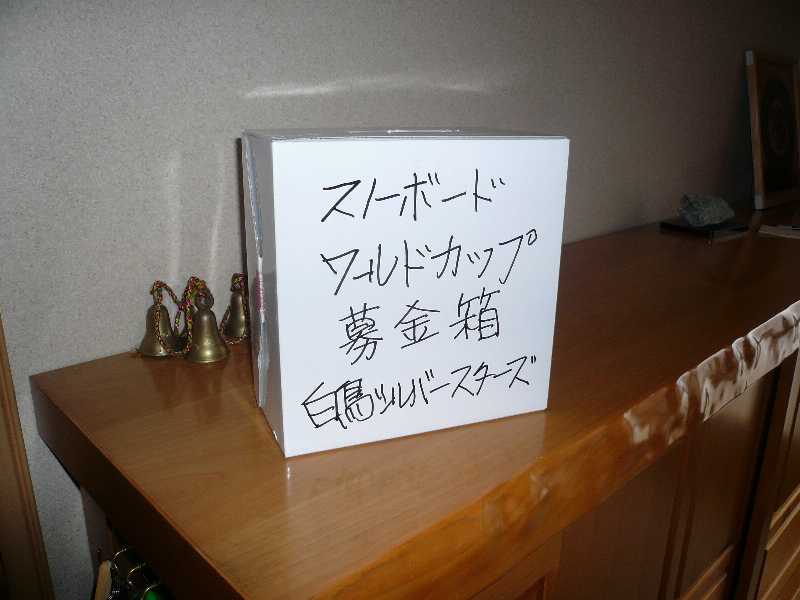 スノーボード
ワールドカップ
募金箱
白鳥シルバースターズ